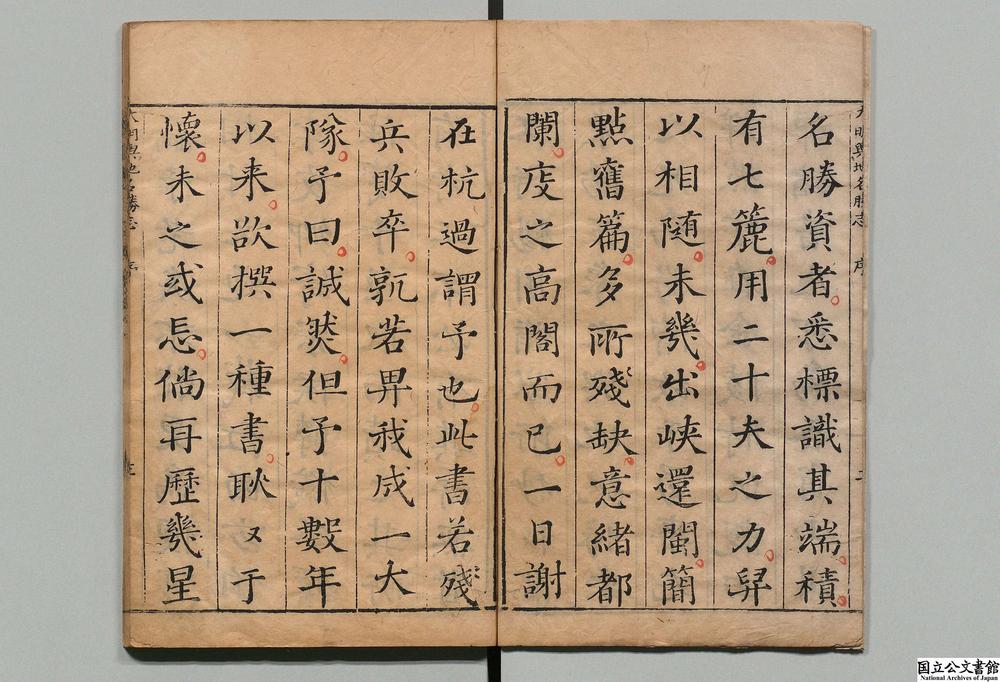 大明輿地名勝志 序 二
名勝資者。悉標識其端。積。
有七簏。用二十夫之力。舁
以相随。未幾。出峡還閩。簡
點舊篇。多所殘缺。意緒都
闌。庋之高閣而已。一日謝
在杭過謂予也。此書若殘
兵敗卒。孰若畀我成一大
隊。予曰。誠然。但予十數年
以来。欲撰一種書。耿々于
懷。未之或忘。倘再歷幾星
大明輿地名勝志 序
国立公文書館
National Archives of Japan